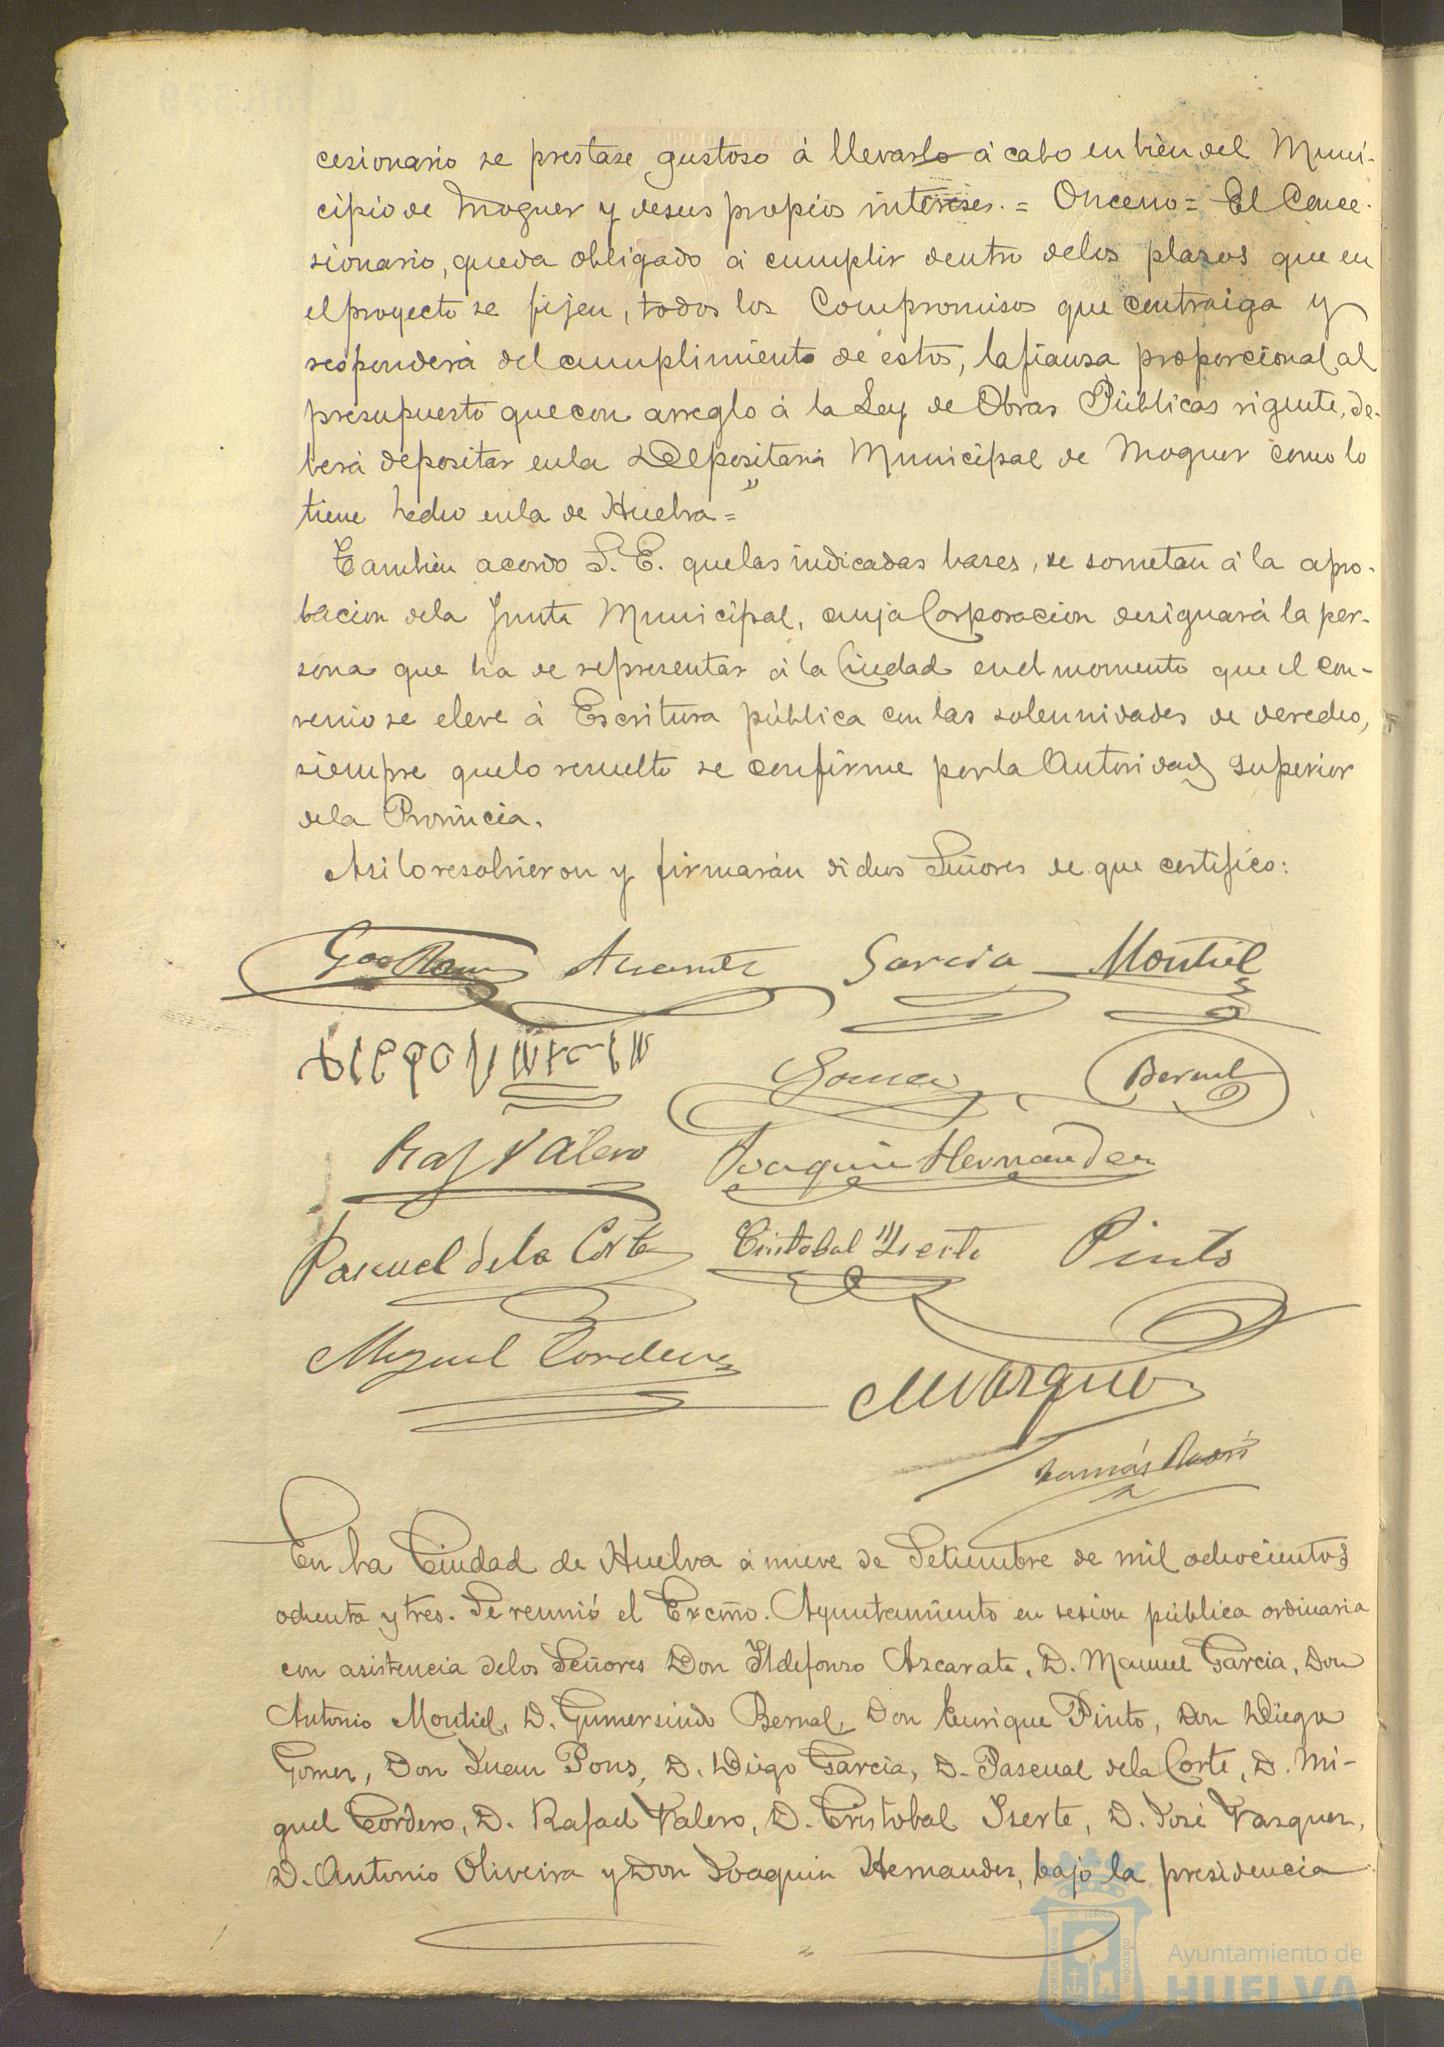 cesionario se prestase gustoso á llevarlo á cabo en bien del Muni-
cipio de Moguer y de sus propios intereses. = Onceno = El Conce-
sionario, queda obligado á cumplir dentro de los plazos que en
el proyecto se fijen, todos los Compromisos que contraiga y
responderá del cumplimiento de estos, la fianza proporcional al
presupuesto que con arreglo á la Ley de Obras Públicas vigente, de-
berá depositar en la Depositaria Municipal de Moguer como lo
tiene hecho en la de Huelva = "
Tambien acordo S. E. que las indicadas bases, se sometan á la apro-
bacion de la Junta Municipal, cuya Corporacion designará la per-
sona que ha de representar á la Ciudad en el momento que el con-
venio se eleve á Escritura pública con las solemnidades de derecho,
siempre que lo resuelto se confirme por la Autoridad superior
de la Provincia.
Asi lo resolvieron y firmarán dichos Señores de que certifico:
Garcia Montiel
Gomez Bernal
Raf Valero Joaquin Hernandez
Pascual de la Corte Cristobal Yserte Pinto
Miguel Cordero
M Vazquez
Tomás
En la Ciudad de Huelva á nueve de Setiembre de mil ochocientos
ochenta y tres. Se reunió el Excmo. Ayuntamiento en sesion pública ordinaria
con asistencia de los Señores Don Ildefonso Azcarate, D. Manuel Garcia, Don
Antonio Montiel, D. Gumersindo Bernal, Don Enrique Pinto, Don Diego
Gomez, Don Juan Pons, D. Diego Garcia, D. Pascual de la Corte, D. Mi-
guel Cordero, D. Rafael Valero, D. Cristobal Iserte, D. José Vazquez,
D. Antonio Oliveira y Don Joaquin Hernandez, bajo la presidencia
Ayuntamiento de
HUELVA